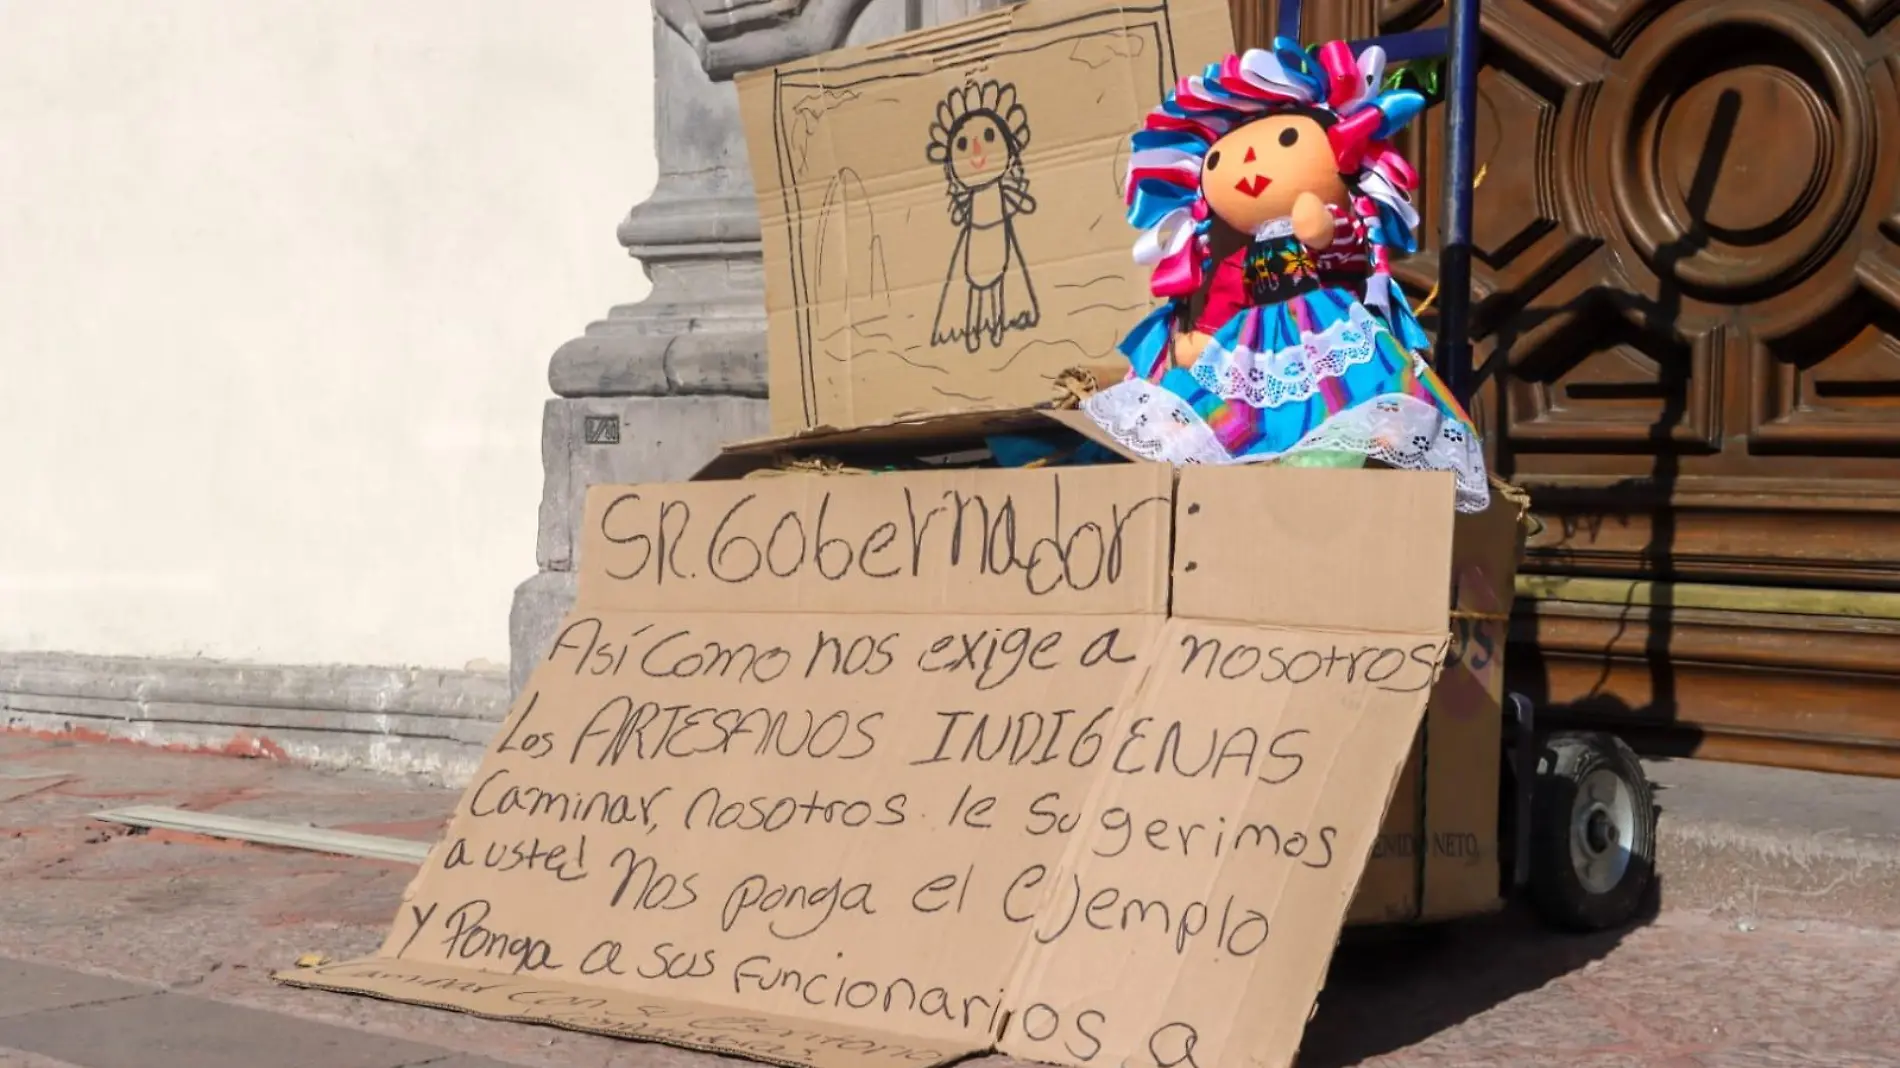 SR. Gobernador:
Así Como nos exige a nosotros
Los ARTESANOS INDIGENAS
Caminar, nosotros le sugerimos
a usted Nos ponga el Ejemplo
y Ponga a sus funcionarios a
Caminar con su escritorio
NETO